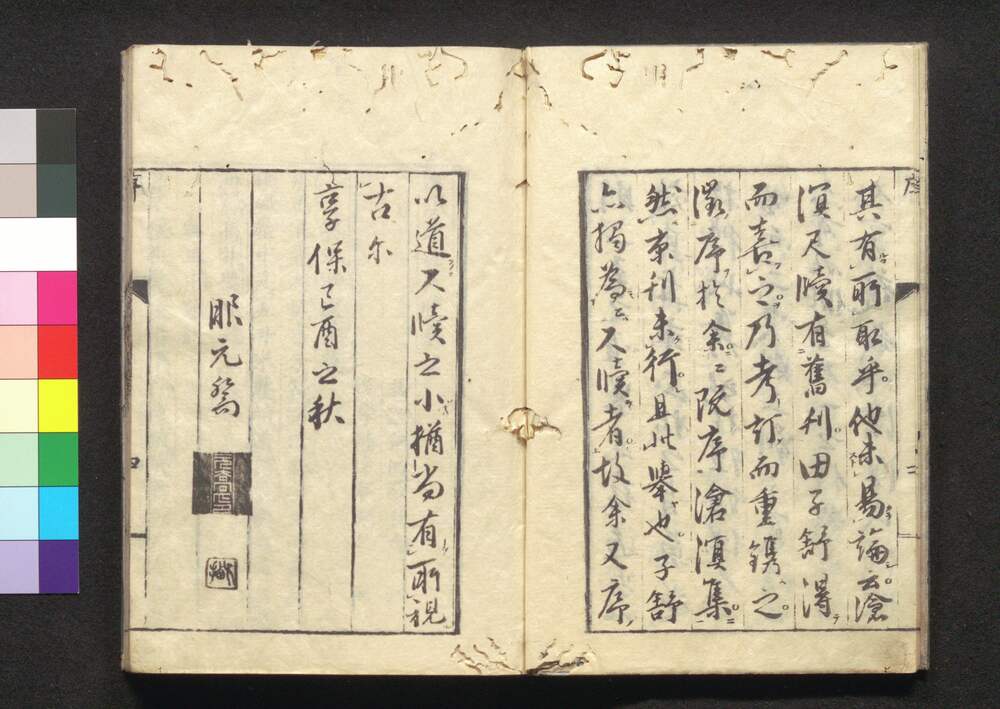 其有所取乎他未易論云滄
溟尺牘有舊刊田子舒得
而喜之乃考訂而重鐫之
徼序於余〻既序滄溟集
然刊未行且此舉也子舒
亦獨為尺牘者故余又序
以道尺牘之小猶尚有所視
古尓
享保己酉之秋
服元喬